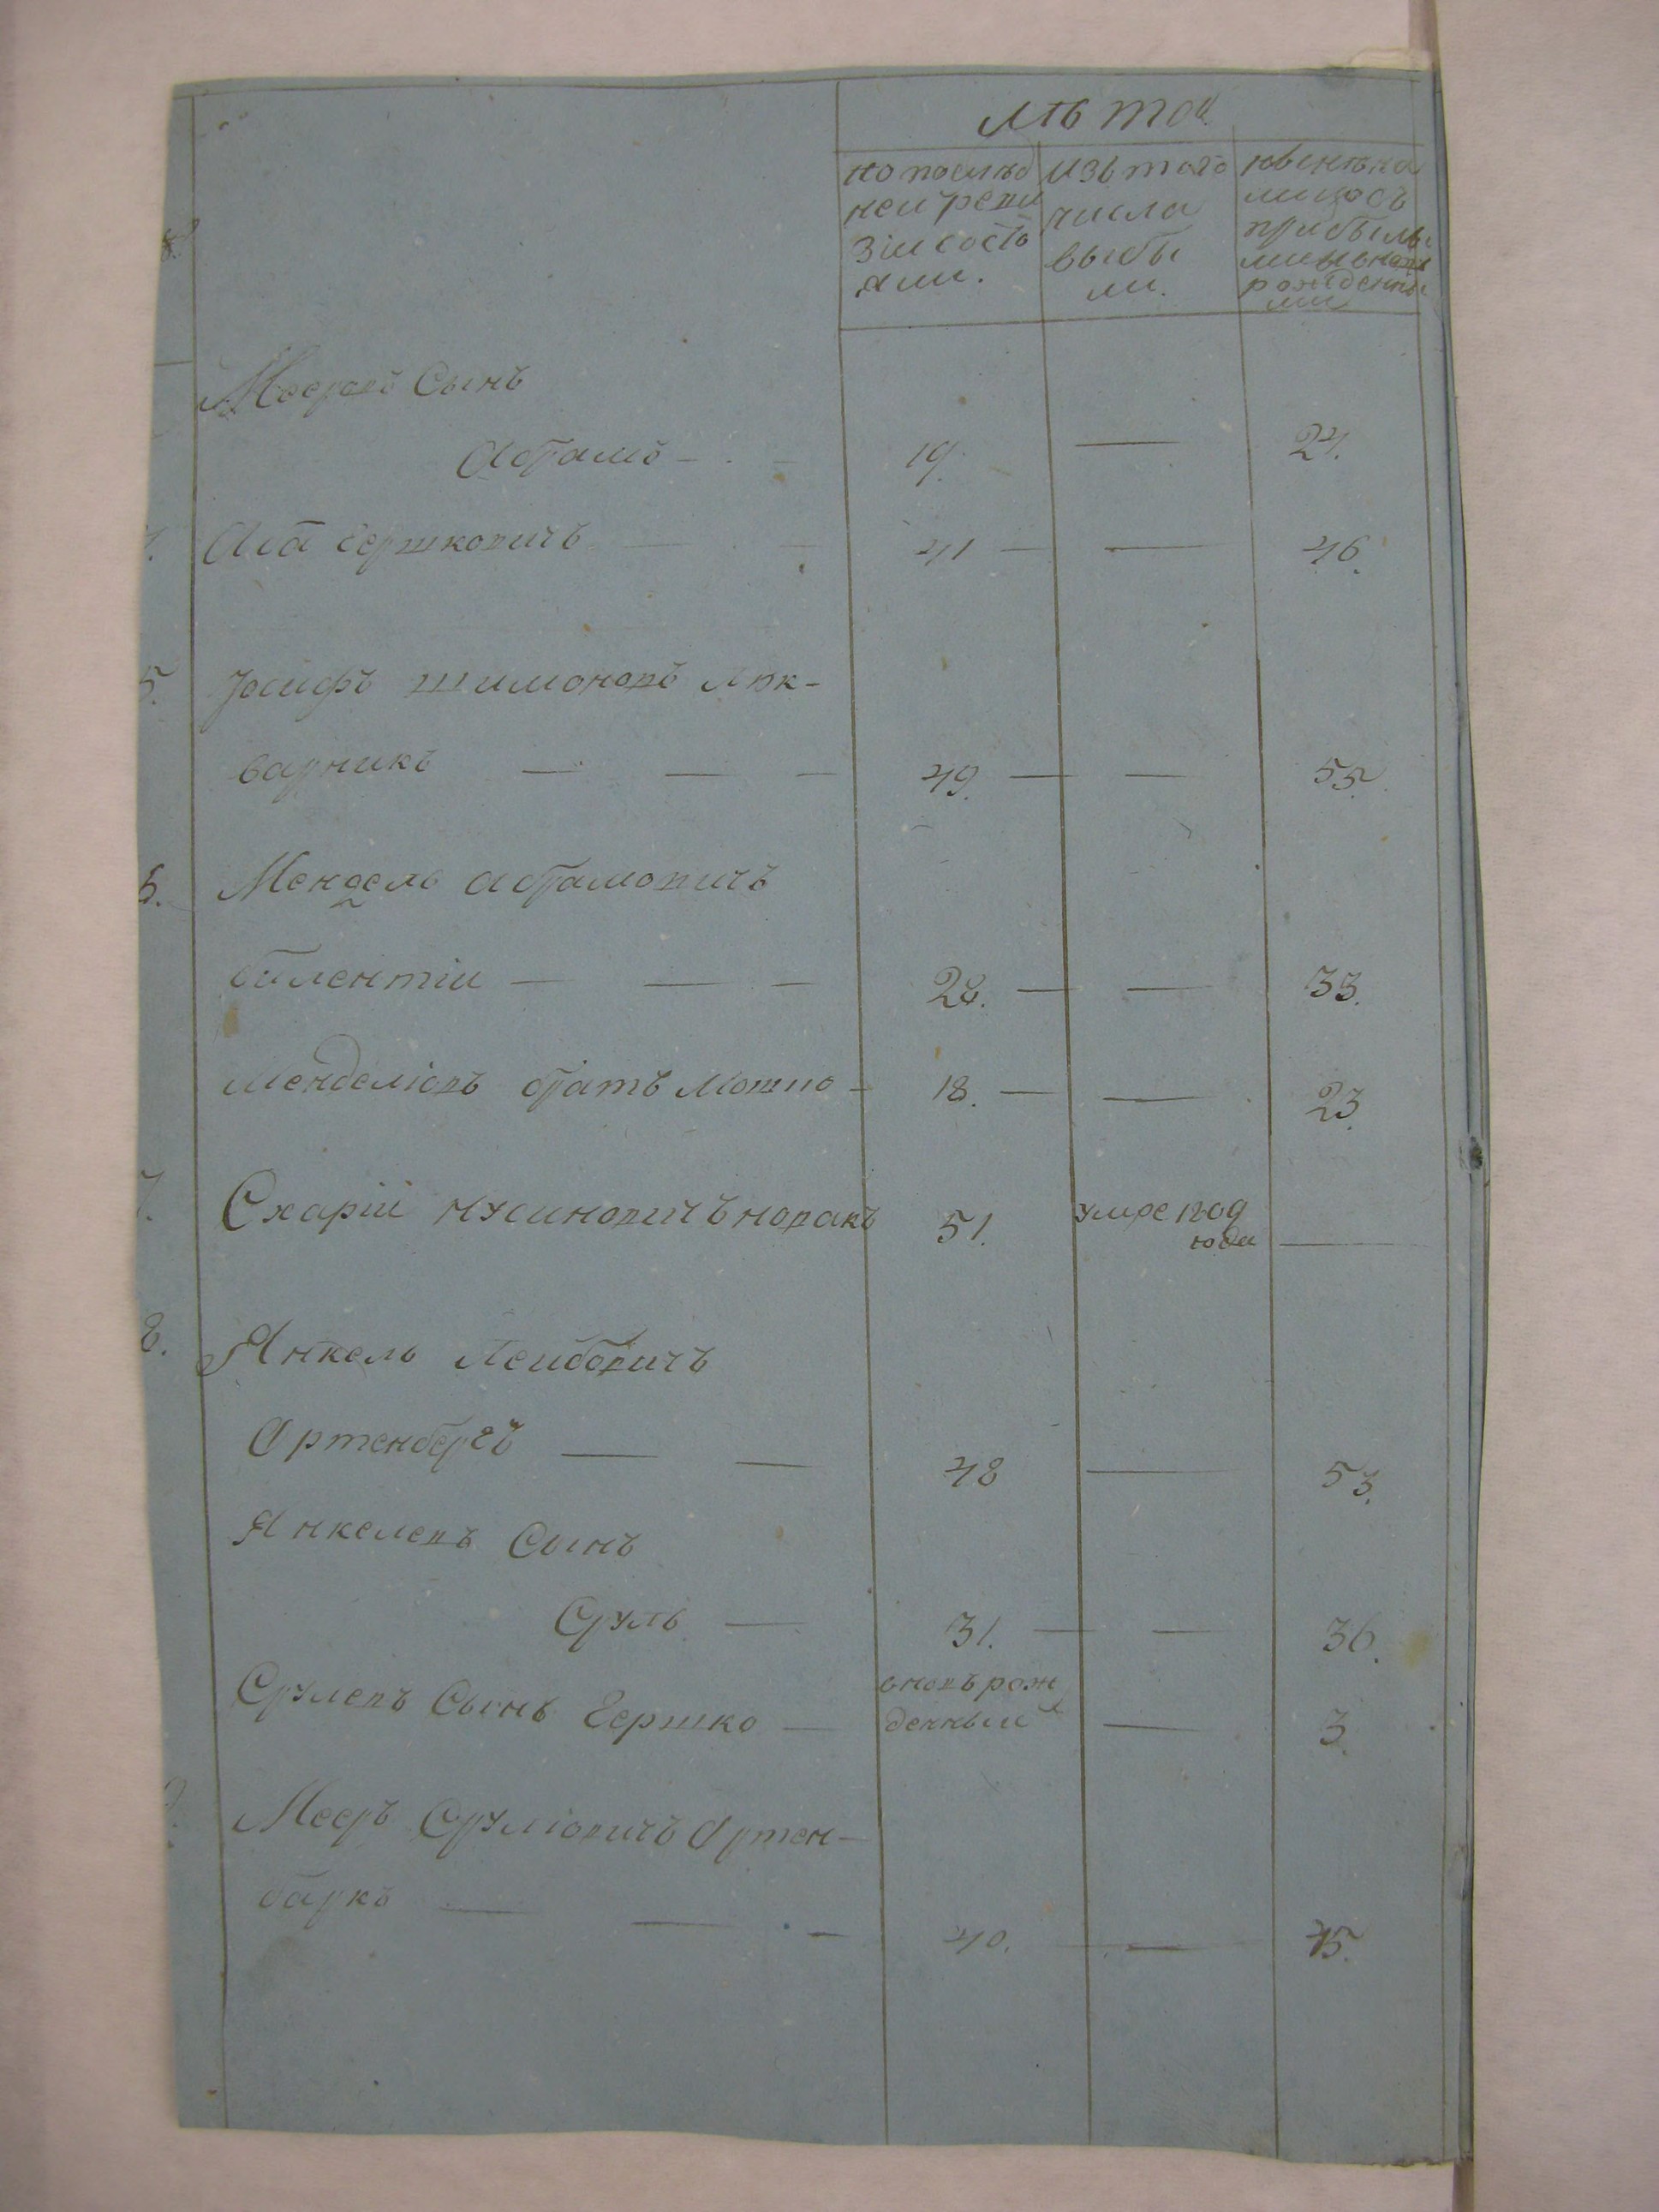 лѣта
по послѣд
ней реви
зіи состо
яли.
изъ того
числа
выбы
ли.
прибылы
рожденны
ми
Мееровъ Сынъ
Абрамъ 19. 24.
Аба гершковичъ 41 46.
5. Іосифъ шимоновъ люк-
варникъ 49. 55.
6. Мендель абрамовичъ
билентіи 28. 33.
менделіовъ братъ Мошко 18. 23.
7. Схарій нусиновичъ новакъ 51. умре 1809
года
8. Янкель Лейбовичъ
Ортенбергъ 48 53.
Янкелевъ Сынъ
Сруль 31. 36.
Срулевъ Сынъ Гершко вновь рож
денный 3.
Мееръ Сруліовичъ Ортен-
баркъ 40. 45.